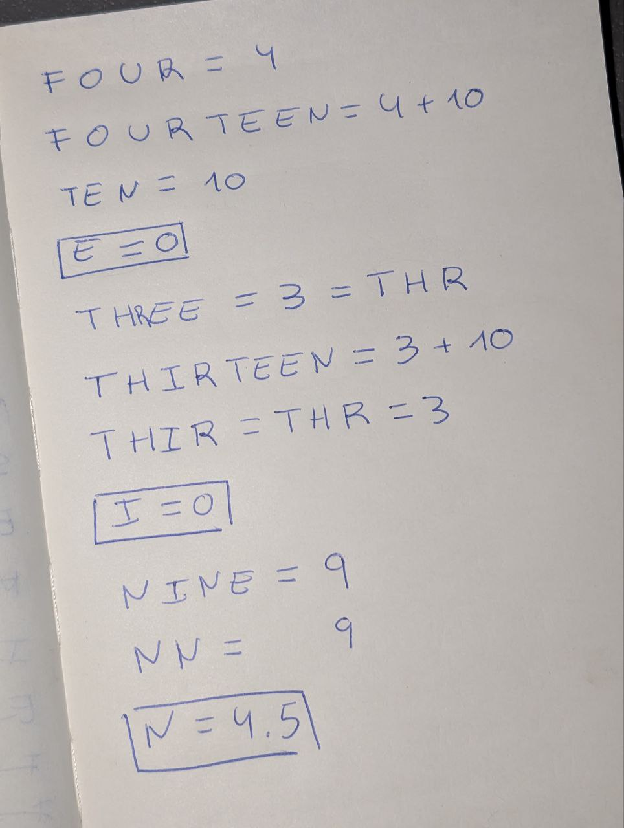 FOUR = 4
FOURTEEN = 4 + 10
TEN = 10
E = 0
THREE = 3 = THR
THIRTEEN = 3 + 10
THIR = THR = 3
I = 0
NINE = 9
NN = 9
N = 4.5